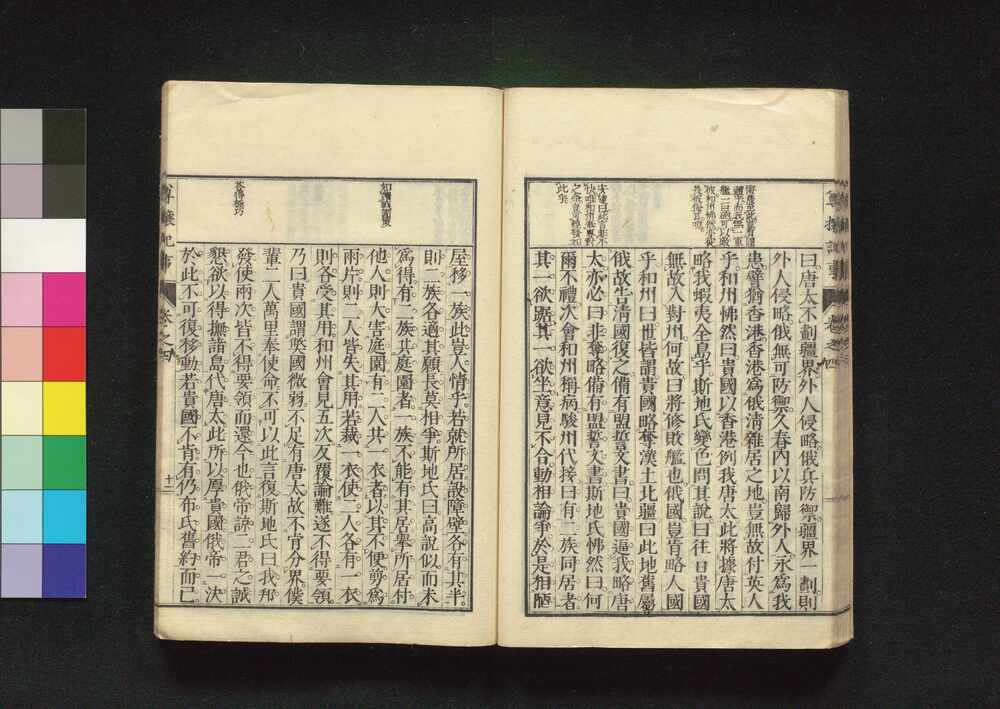 曰唐太不劃疆界外人侵略俄兵防禦疆界一劃則
外人侵略俄無可防禦久春內以南歸外人永爲我
患譬猶香港香港爲俄淸雜居之地豈無故付英人
乎和州怫然曰貴國以香港例我唐太此將據唐太
略我蝦夷全島乎斯地氏變色問其說曰往日貴國
無故入對州何故曰將修敗艦也俄國豈肯略人國
乎和州曰世皆謂貴國略奪漢土北疆曰此地舊屬
俄故告淸國復之備有盟誓文書曰貴國逼我略唐
太亦必曰非奪略備有盟誓文書斯地氏怫然曰何
爾不禮次會和州稱病駿州代接曰有二族同居者
其一欲踞其一欲坐意見不合動相論爭於是相陋
屋移一族此豈人情乎若就所居設障壁各有其半
則二族各適其願長莫相爭斯地氏曰高說似而未
爲得有二族共庭園者一族不能有其居擧所居付
他人則大害庭園有二人共一衣者以其不便剪爲
兩片則二人皆失其用若裁一衣使二人各有一衣
則各受其用和州會見五次反覆論難遂不得要領
乃曰貴國謂弊國微弱不足有唐太故不肯分界僕
輩二人萬里奉使命不可以此言復斯地氏曰我邦
發使兩次皆不得要領而還今也俄帝諒二君之誠
懇欲以得撫諸島代唐太此所以厚貴國俄帝一決
於此不可復移動若貴國不肯有仍布氏舊約而已
答得極巧
卷之四
十一